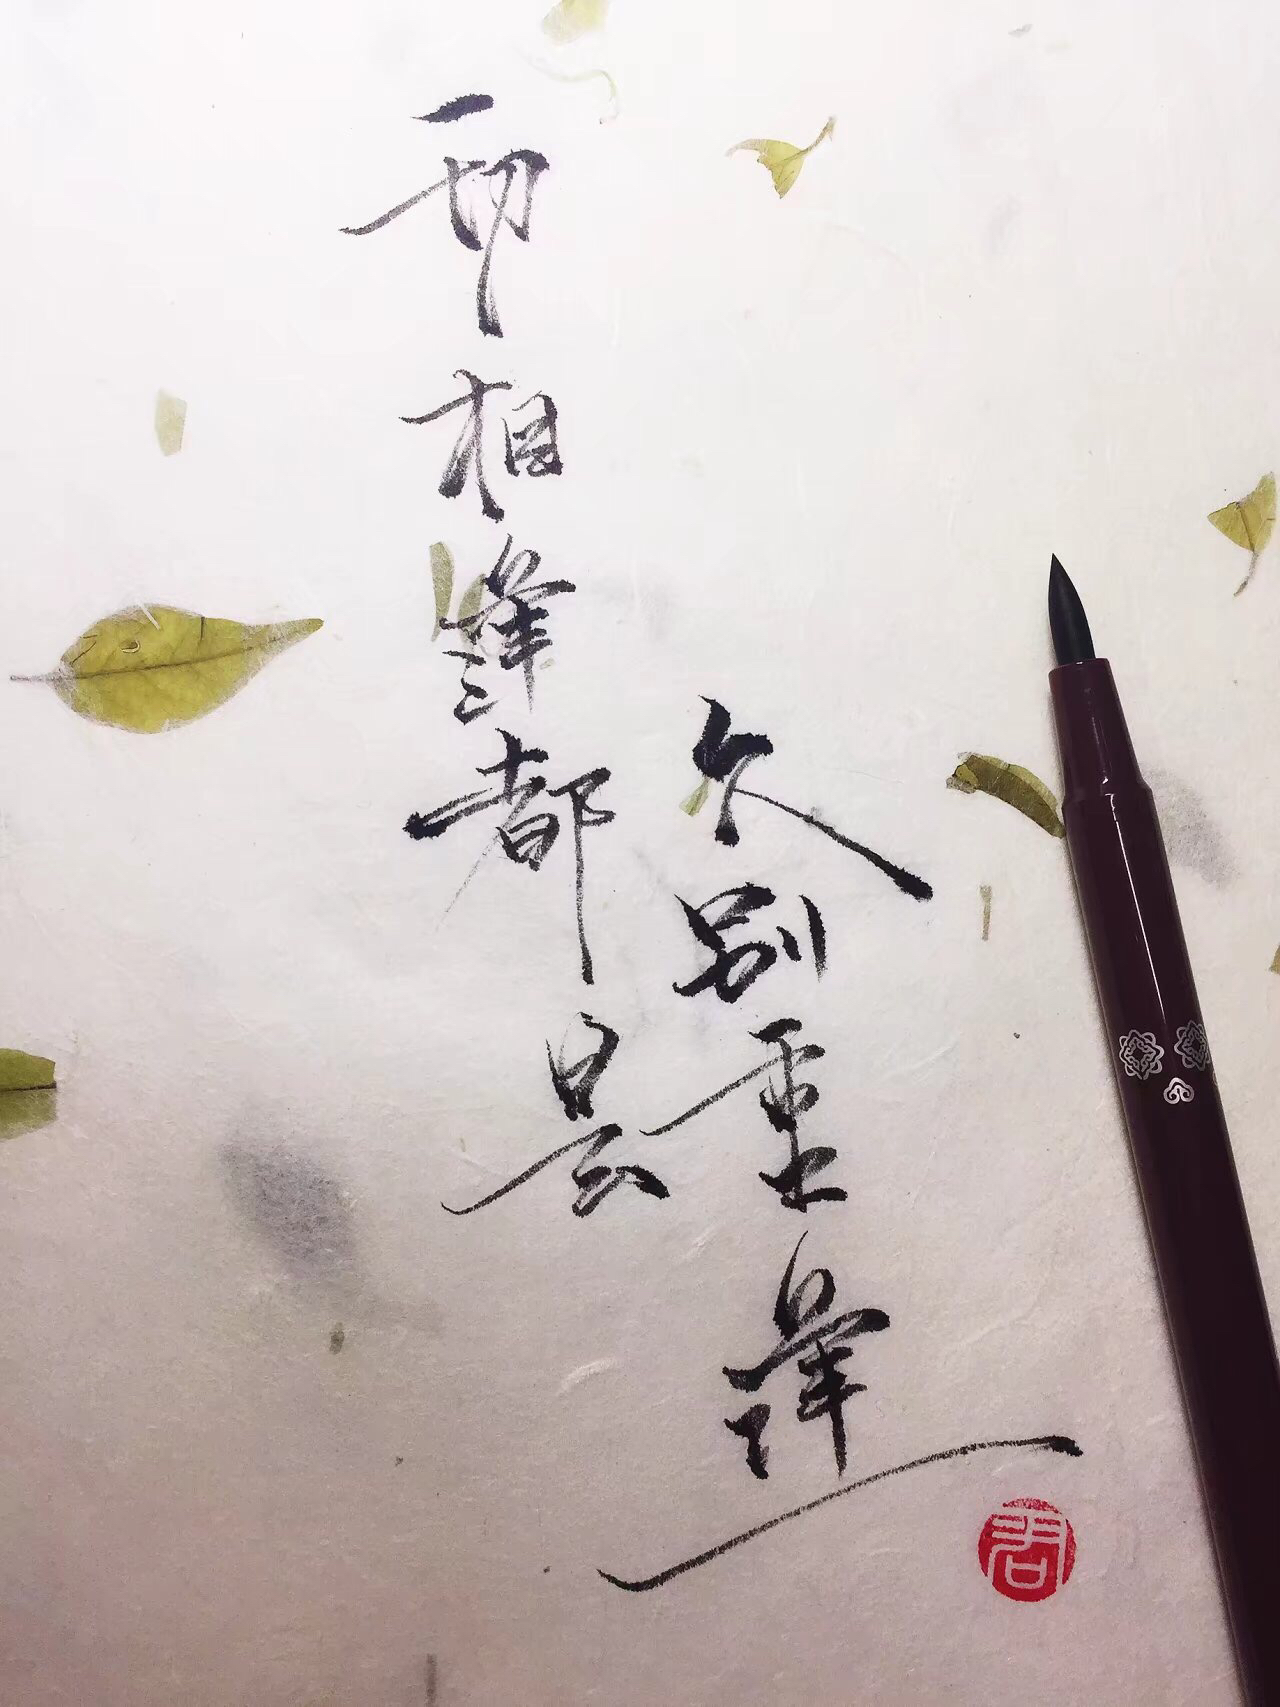 一切相逢都是
久别重逢